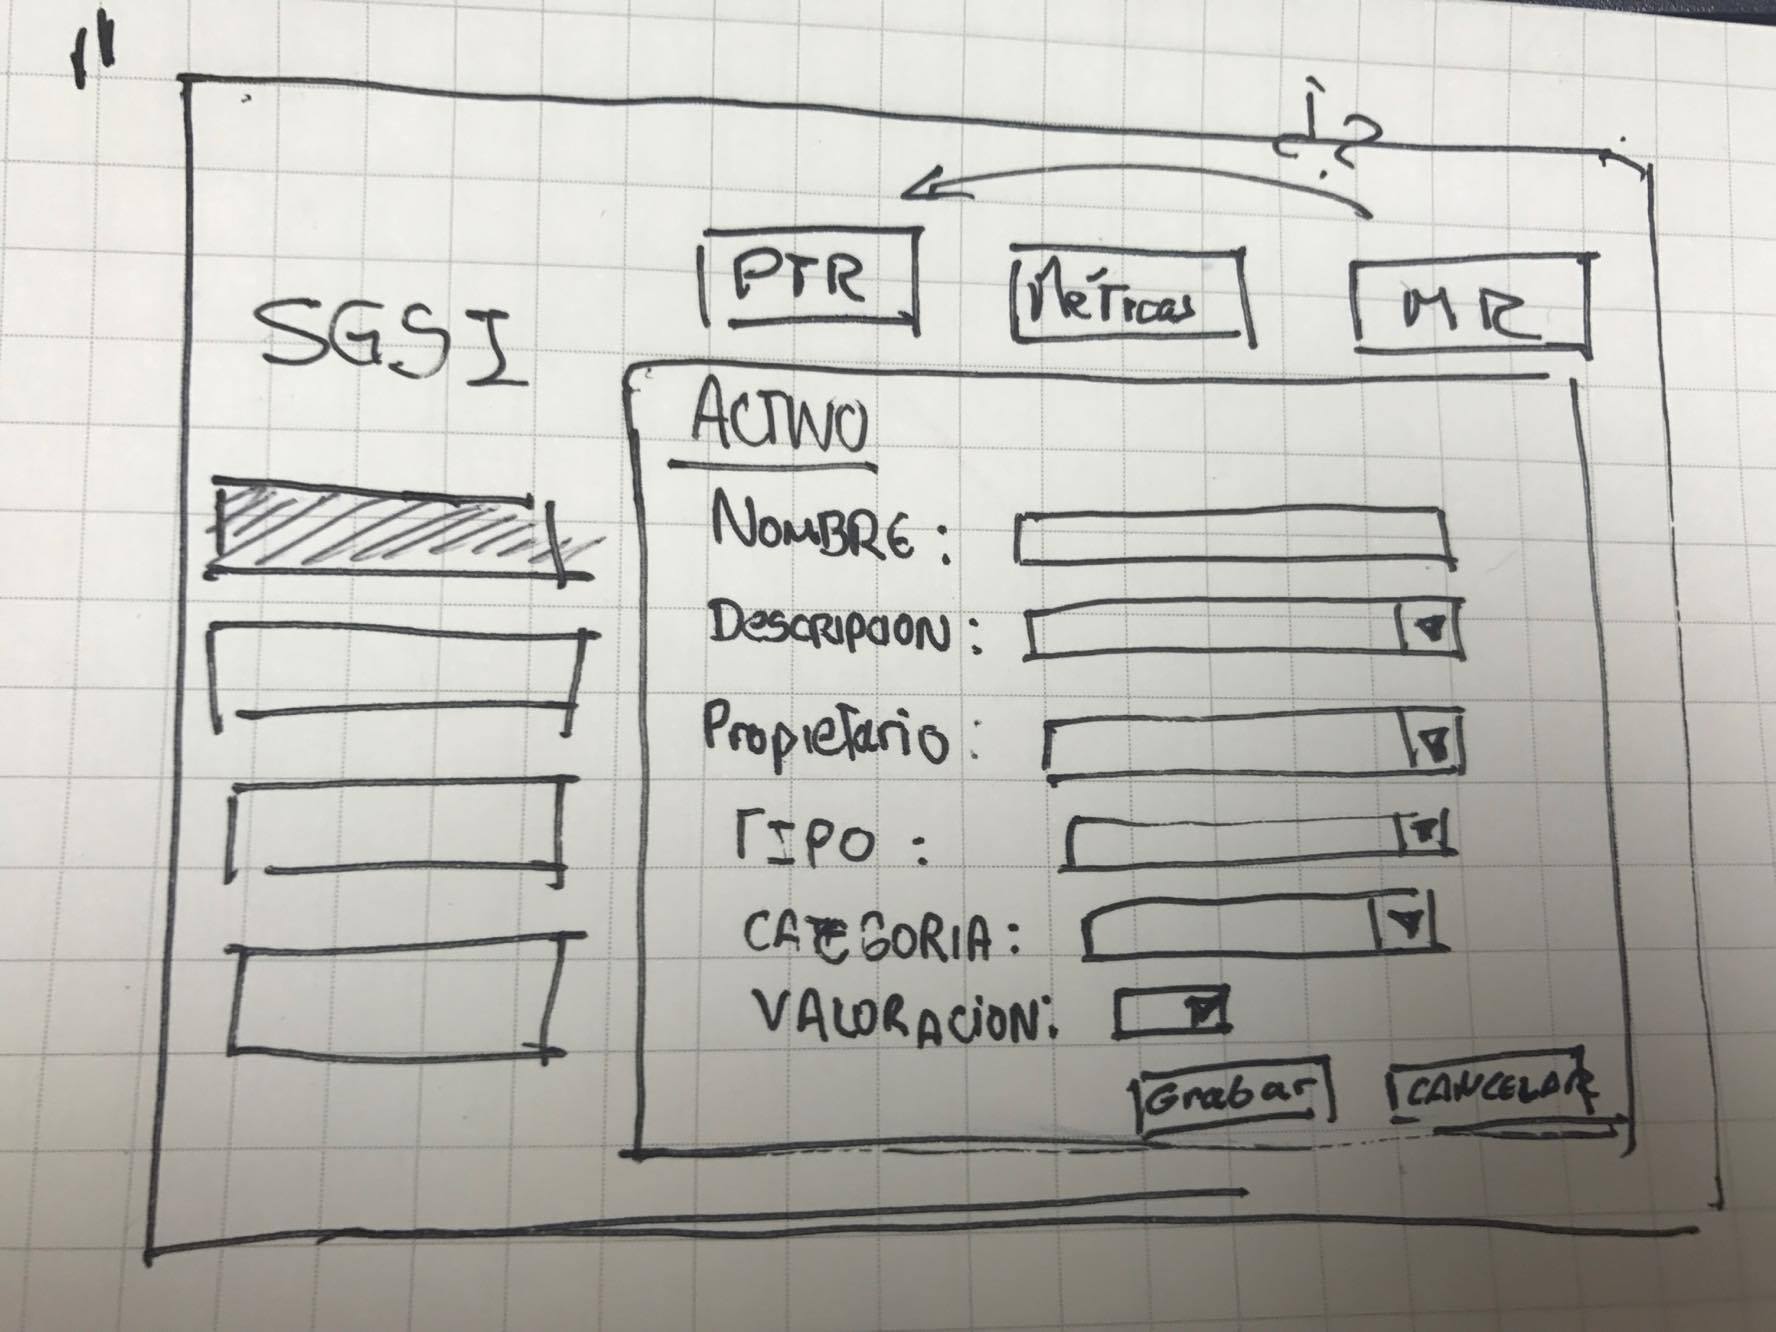 ¿?
PTR
Métricas
MR
SGSI
ACTIVO
NOMBRE:
DESCRIPCION:
Propietario:
TIPO:
CATEGORIA:
VALORACION:
Grabar
CANCELAR